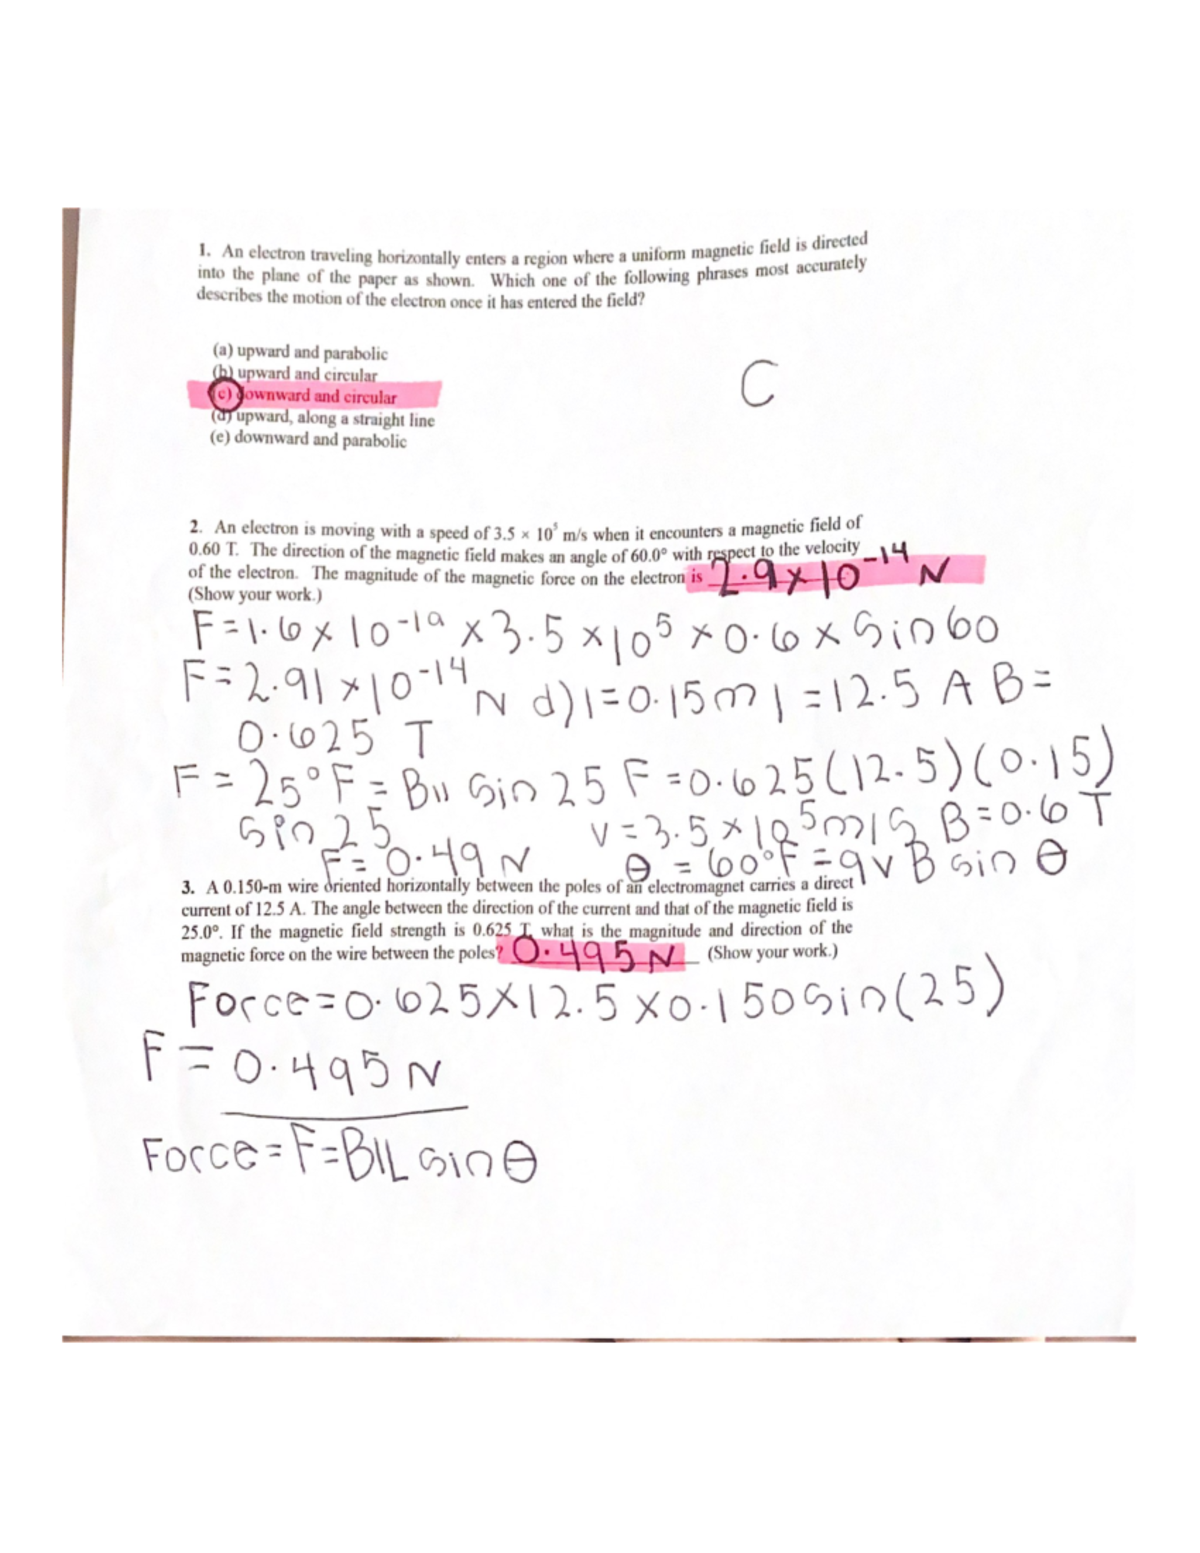 1. An electron traveling horizontally enters a region where a uniform magnetic field is directed
into the plane of the paper as shown. Which one of the following phrases most accurately
describes the motion of the electron once it has entered the field?
(a) upward and parabolic
(b) upward and circular
(c) downward and circular
(d) upward, along a straight line
(e) downward and parabolic
C
2. An electron is moving with a speed of 3.5 × 10⁵ m/s when it encounters a magnetic field of
0.60 T. The direction of the magnetic field makes an angle of 60.0° with respect to the velocity
of the electron. The magnitude of the magnetic force on the electron is 2.9×10⁻¹⁴ N
(Show your work.)
F=1.6×10⁻¹⁹ ×3.5×10⁵ ×0.6×Sin60
F=2.91×10⁻¹⁴ N d)l=0.15m I=12.5 A B=
0.625 T
F=25° F=BIl Sin 25 F=0.625(12.5)(0.15)
Sin 25 v=3.5×10⁵m/s B=0.6 T
F=0.49 N θ=60° F=qvB sin θ
3. A 0.150-m wire oriented horizontally between the poles of an electromagnet carries a direct
current of 12.5 A. The angle between the direction of the current and that of the magnetic field is
25.0°. If the magnetic field strength is 0.625 T, what is the magnitude and direction of the
magnetic force on the wire between the poles? 0.495N (Show your work.)
Force=0.625×12.5×0.150Sin(25)
F=0.495N
Force=F=BIL Sinθ